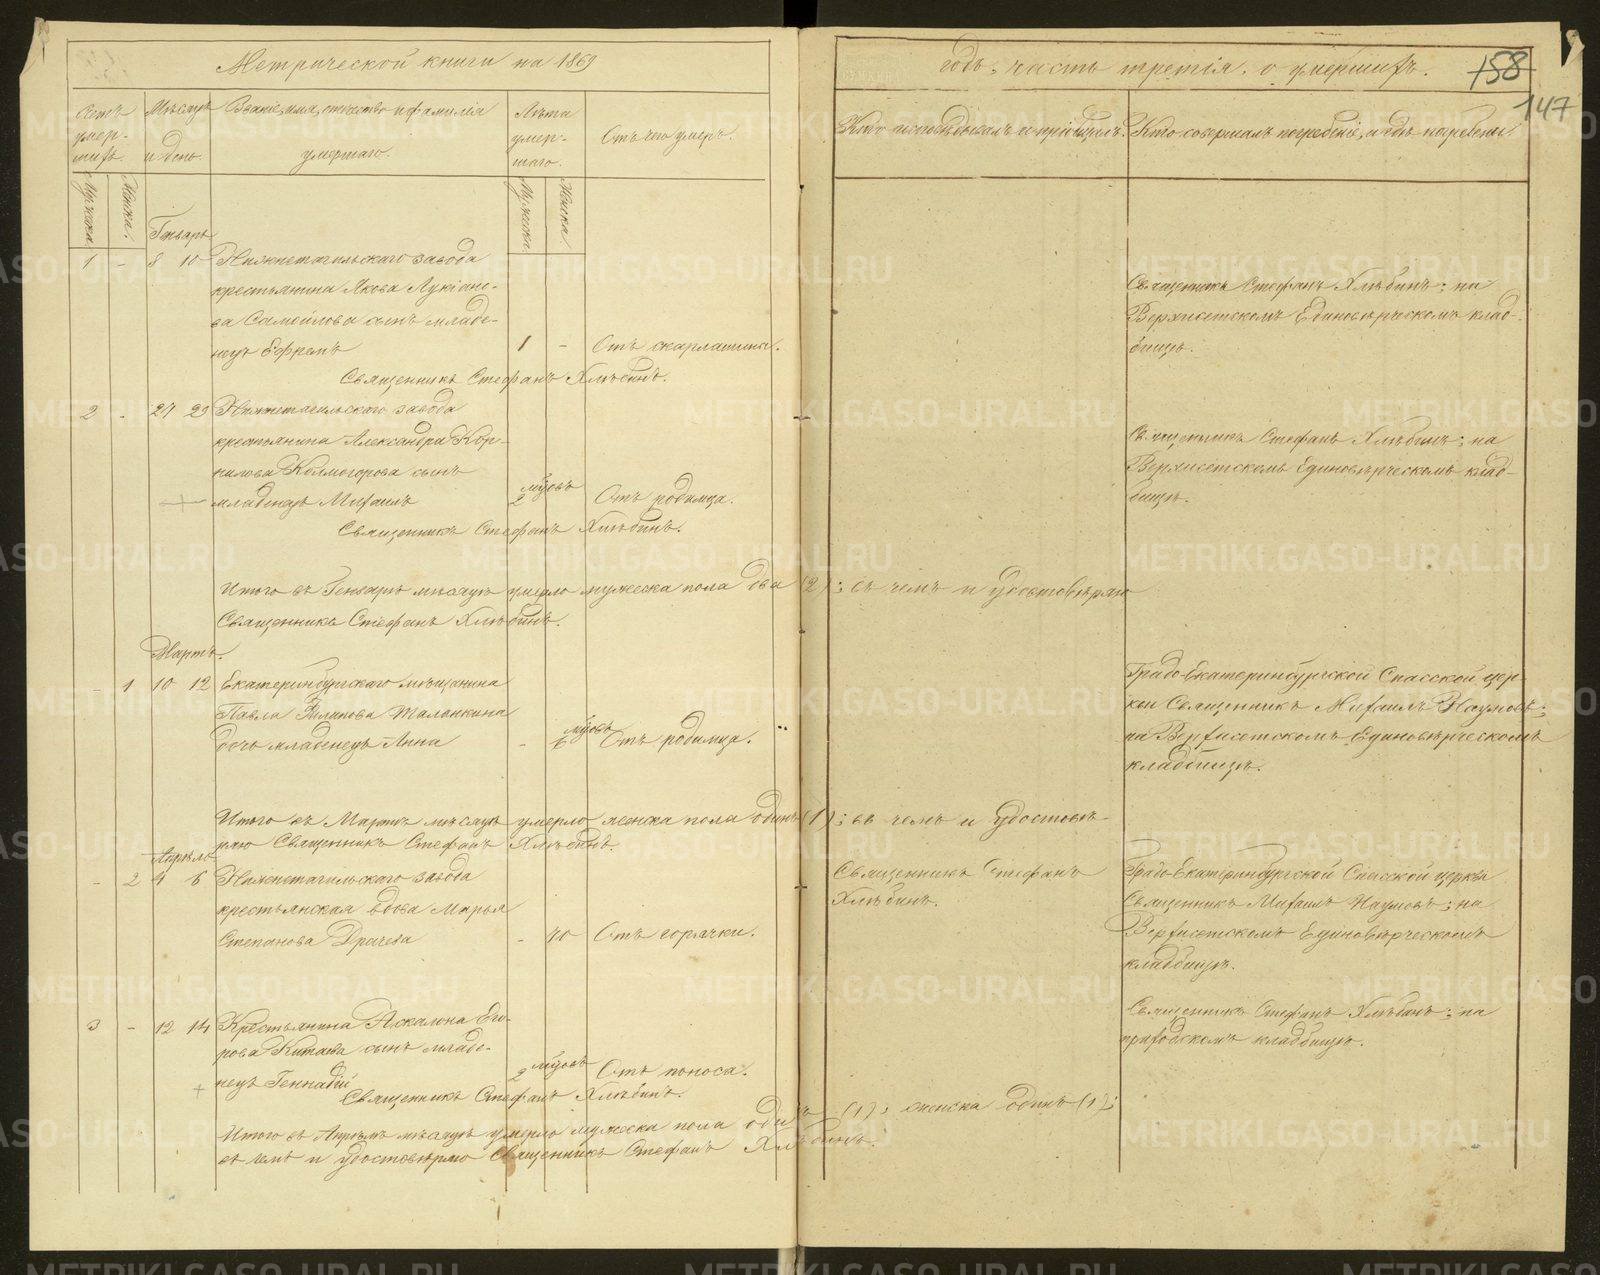 Метрической книги на 1869
Счетъ умер-шихъ.
Мѣсяцъ и день.
Званіе, имя, отчество и фамилія умершаго.
Лѣта умер-шаго.
Отъ чего умеръ.
Мужеска
Женска.
Мужеска
Женска.
Генварь
1 - 8 10 Нижнетагильскаго завода
крестьянина Якова Лукіано-
ва Самойлова сынъ младе-
нецъ Ефремъ 1 - Отъ скарлатины.
Священникъ Стефанъ Хлѣбинъ.
2 - 27 29 Нижнетагильскаго завода
крестьянина Александра Кор-
нилова Колмогорова сынъ
младенецъ Михаилъ 2 мѣсов. Отъ родимца.
Священникъ Стефанъ Хлѣбинъ.
Итого въ Генварѣ мѣсяцѣ умерло мужеска пола два (2); въ чемъ и удостовѣряю
Священникъ Стефанъ Хлѣбинъ.
Мартъ.
- 1 10 12 Екатеринбургскаго мѣщанина
Павла Филипова Таланкина
дочь младенецъ Анна - 6 Отъ родимца.
Итого въ Мартѣ мѣсяцѣ умерло женска пола одинъ (1); въ чемъ и удостовѣ-
ряю Священникъ Стефанъ Хлѣбинъ.
Апрѣль
- 2 4 6 Нижнетагильскаго завода
крестьянская вдова Марья
Степанова Драчева - 70 Отъ горячки.
3 - 12 14 Крестьянина Аскалона Его-
рова Китаева сынъ младе-
нецъ Геннадій 2 Отъ поноса.
Священникъ Стефанъ Хлѣбинъ.
Итого въ Апрѣлѣ мѣсяцѣ умерло мужеска пола одинъ (1); женска одинъ (1);
въ чемъ и удостовѣряю Священникъ Стефанъ Хлѣбинъ.
годъ, часть третія, о умершихъ.
158
147
Кто исповѣдывалъ и пріобщилъ.
Кто совершалъ погребеніе, и гдѣ погребены.
Священникъ Стефанъ Хлѣбинъ; на
Верхисетскомъ Единовѣрческомъ клад-
бищѣ.
Священникъ Стефанъ Хлѣбинъ; на
Верхисетскомъ Единовѣрческомъ клад-
бищѣ.
Градо-Екатеринбургской Спасской цер-
кви Священникъ Михаилъ Наумовъ;
на Верхисетскомъ Единовѣрческомъ
кладбищѣ.
Священникъ Стефанъ
Хлѣбинъ.
Градо-Екатеринбургской Спасской церкви
Священникъ Михаилъ Наумовъ; на
Верхисетскомъ Единовѣрческомъ
кладбищѣ.
Священникъ Стефанъ Хлѣбинъ; на
приходскомъ кладбищѣ.
METRIKI.GASO-URAL.RU